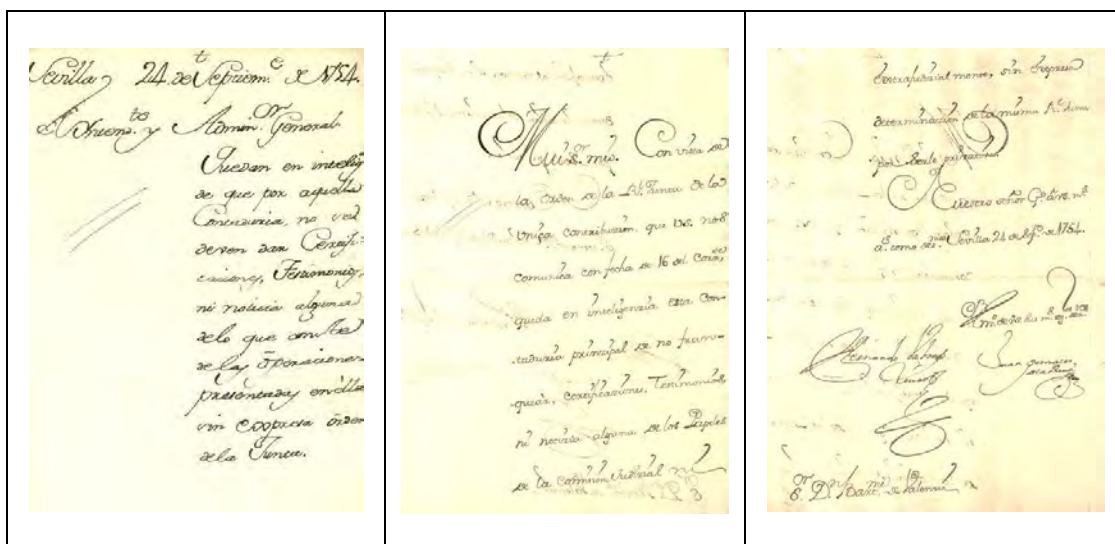 Sevilla 24 de Septiem.e de 1754.
Intend.to y Admin.or General
Quedan en intelig
de que por aquella
Contaduria, no se
deven dar Certifi-
caciones, Testimonios,
ni noticia alguna
de lo que conste
de las operaciones
presentadas en ella
sin expresa orden
de la Junta.
Mui S.or mio. Con vista de
la orden de la R.l Junta de la
Unica contribucion, que VS. nos
comunica con fecha de 16 del Corr.te
queda en inteligencia esta Con-
taduria principal de no fran-
quear, certificaciones, Testimonios,
ni noticia alguna de los Papeles
de la comision Judicial ni
Extrajudicial mente, sin expresa
determinacion de la misma R.l Junta
Nuestro señor G.e a VS. m.s
a.s como des.mos Sevilla 24 de Sep.re de 1754.
S.or D.n Bart.me de Valencia